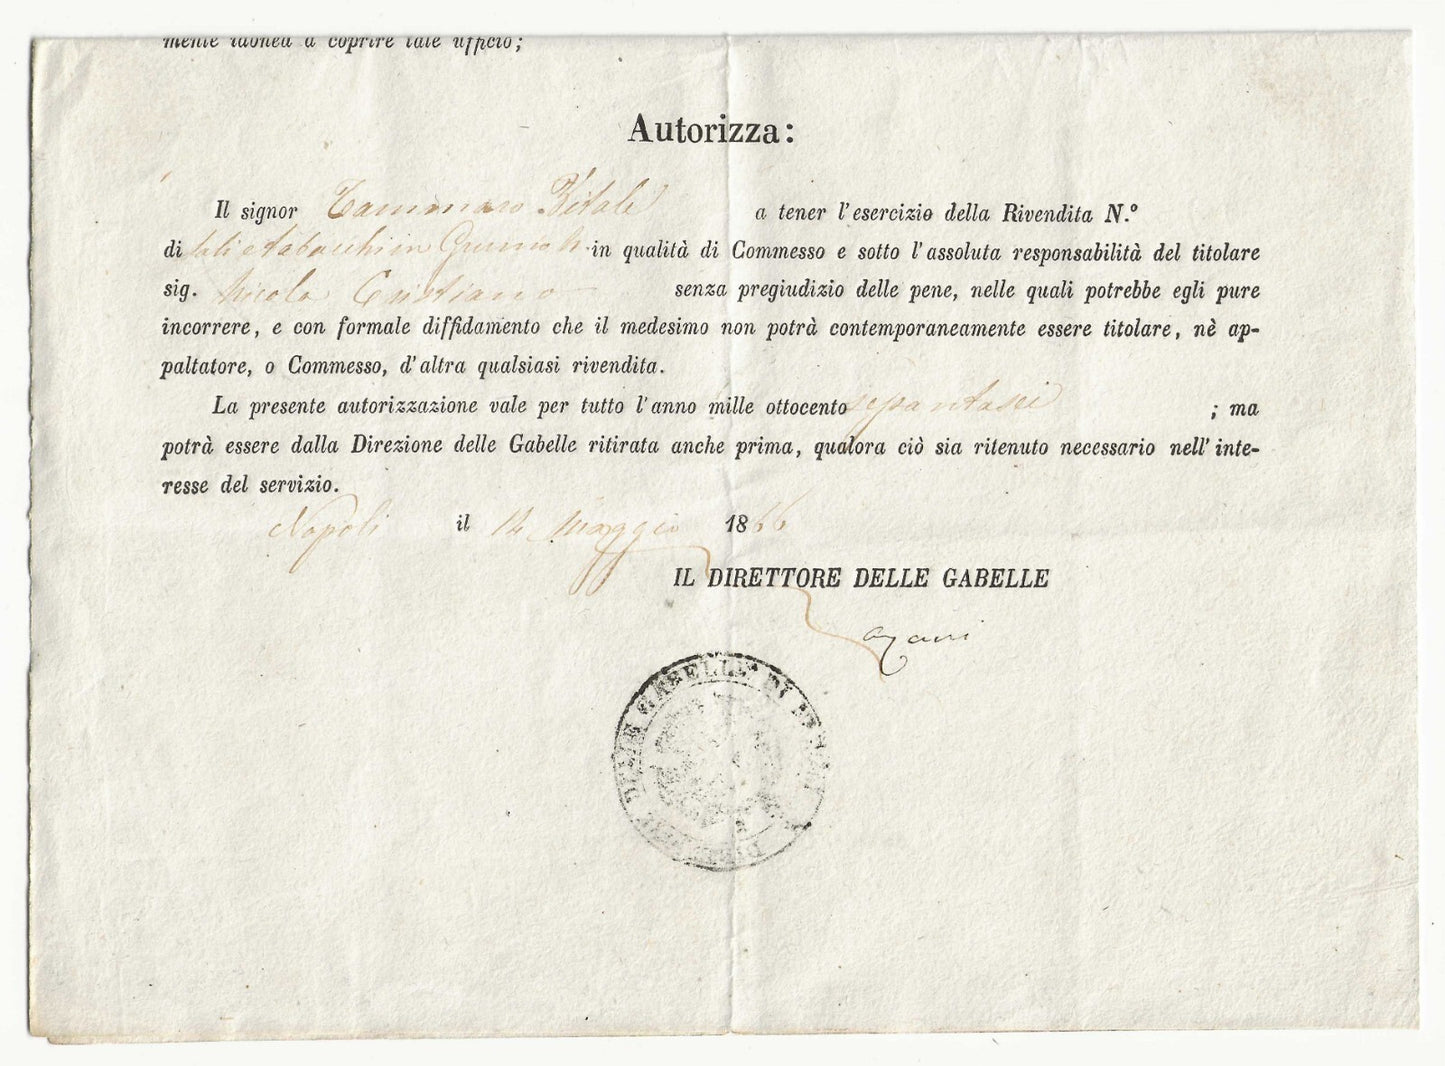 mente idonea a coprire tale ufficio;
Autorizza:
Il signor Tammaro Vitale a tener l'esercizio della Rivendita N.º
di sali e tabacchi in in qualità di Commesso e sotto l'assoluta responsabilità del titolare
sig. Nicola Cristiano senza pregiudizio delle pene, nelle quali potrebbe egli pure
incorrere, e con formale diffidamento che il medesimo non potrà contemporaneamente essere titolare, nè ap-
paltatore, o Commesso, d'altra qualsiasi rivendita.
La presente autorizzazione vale per tutto l'anno mille ottocento ; ma
potrà essere dalla Direzione delle Gabelle ritirata anche prima, qualora ciò sia ritenuto necessario nell'inte-
resse del servizio.
Napoli il 14 Maggio 1866
IL DIRETTORE DELLE GABELLE
DELLE GABELLE DI